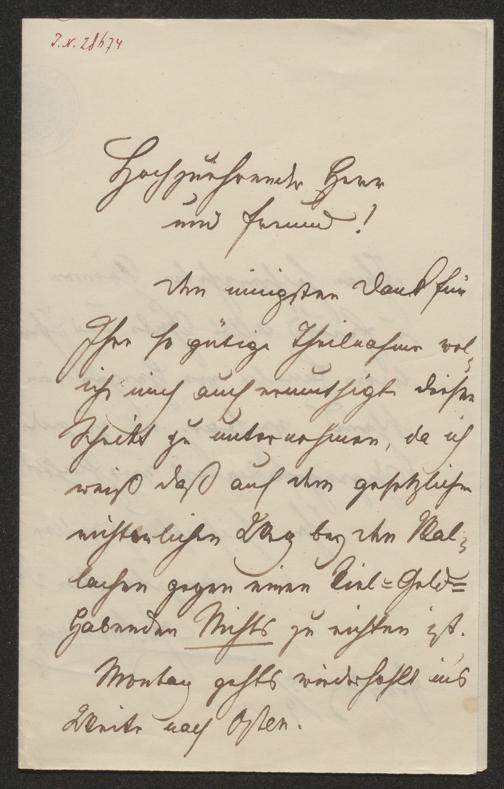 J. N. 28674
Hochzuehrender Herr
und Freund!
Den innigsten Dank für
Ihre so gütige Theilnahme wel-
che mich auch ermuthigte diesen
Schritt zu unternehmen, da ich
weiß daß auf dem gesetzlichen
richterlichen Weg bey den Wal-
lachen gegen einen Viel=Geld=
Habenden Nichts zu richten ist.
Montag gehts wiederhohlt ins
Weite nach Osten.